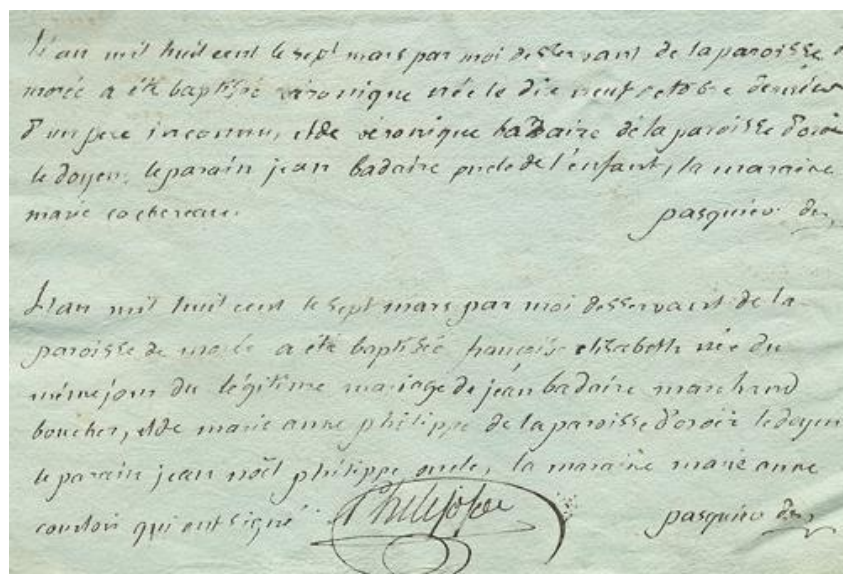 L'an mil huit cent le sept mars par moi desservant de la paroisse
morée a été baptisée véronique née le dix neuf octobre dernier
d'un pere inconnu, et de véronique badaire de la paroisse d'oroir
le doyen. le parain jean badaire oncle de l'enfant, la maraine
marie cochereau. pasquier des
L'an mil huit cent le sept mars par moi desservant de la
paroisse de morée a été baptisée françoise elisabeth née du
même jour du légitime mariage de jean badaire marchand
boucher, et de marie anne philippe de la paroisse d'oroir le doyen
le parain jean noël philippe oncle, la maraine marie anne
qui ont signé Philippe pasquier des